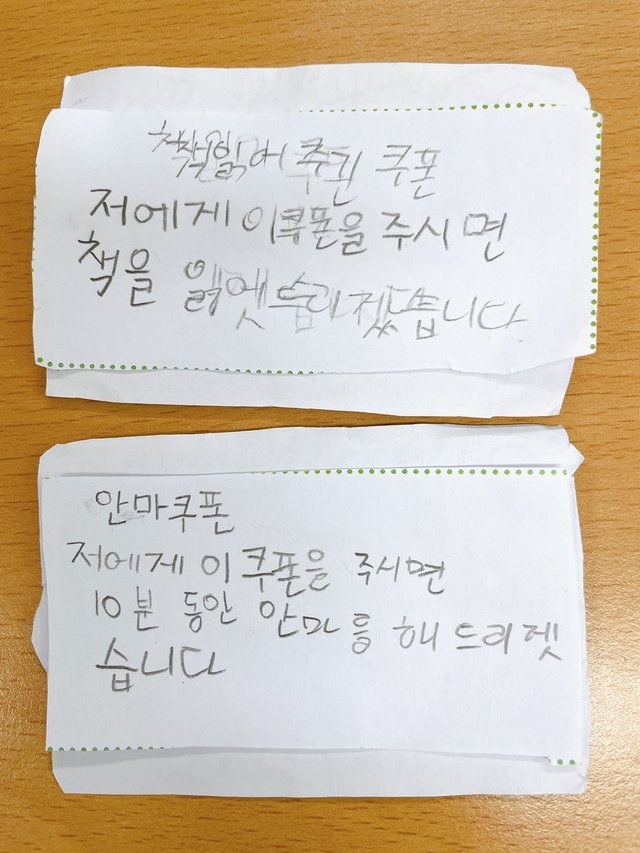 책읽어 주긴 쿠폰
저에게 이쿠폰을 주시면
책을 읽엣 습리겠습니다
안마쿠폰
저에게 이 쿠폰을 주시면
10분 동안 안마를 해 드리겟
습니다